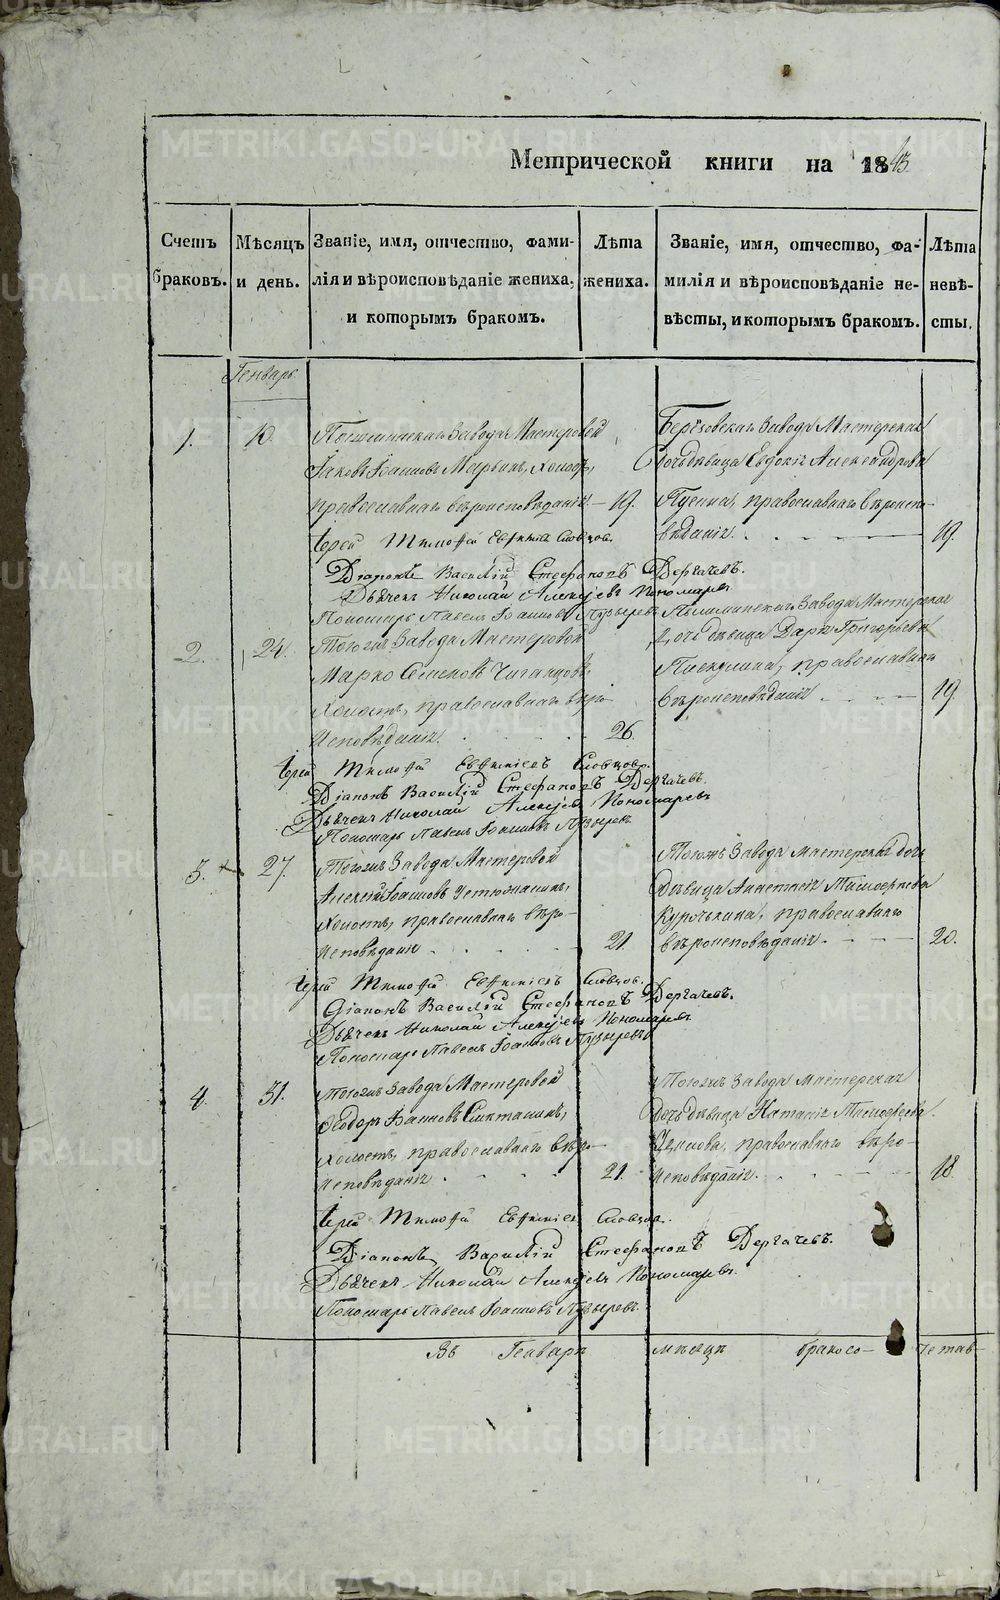 METRIKI.GASO-URAL.RU
Метрической книги на 1843
Счетъ браковъ.
Мѣсяцъ и день.
Званіе, имя, отчество, фами-
лія и вѣроисповѣданіе жениха,
и которымъ бракомъ.
Лѣта жениха.
Званіе, имя, отчество, фа-
милія и вѣроисповѣданіе не-
вѣсты, и которымъ бракомъ.
Лѣта невѣ-
сты.
Генварь
1.
10.
Завода Мастеровой
Іаковъ Іоанновъ Марьинъ, холостъ,
православнаго вѣроисповѣданія —
19.
Берёзовскаго Завода Мастерская
дочь дѣвица Евдокія Александрова
православнаго вѣроиспо-
вѣданія.
19.
Іерей Тимоѳей Евѳиміевъ Словцовъ.
Діаконъ Василій Стефановъ Дергачевъ.
Дьячекъ Николай Алексѣевъ Пономаревъ
Пономарь Павелъ Іоанновъ Пузыревъ
2.
24.
Тогожъ Завода Мастеровой
Марко Семеновъ Чиганцовъ,
холостъ, православнаго вѣро-
исповѣданія.
26.
Завода Мастерская
дочь дѣвица Дарья Григорьева
Пискулина, православнаго
вѣроисповѣданія
19.
Іерей Тимоѳей Евѳиміевъ Словцовъ.
Діаконъ Василій Стефановъ Дергачевъ.
Дьячекъ Николай Алексѣевъ Пономаревъ
Пономарь Павелъ Іоанновъ Пузыревъ
3.
27.
Тогожъ Завода Мастеровой
Алексѣй Іоанновъ Устюжанинъ,
холостъ, православнаго вѣро-
исповѣданія
21.
Тогожъ Завода Мастерская дочь
дѣвица Анастасія Тимофеева
Курочкина, православнаго
вѣроисповѣданія.
20.
Іерей Тимоѳей Евѳиміевъ Словцовъ.
Діаконъ Василій Стефановъ Дергачевъ.
Дьячекъ Николай Алексѣевъ Пономаревъ
Пономарь Павелъ Іоанновъ Пузыревъ
4.
31.
Тогожъ Завода Мастеровой
Ѳеодоръ Іоанновъ Сметанинъ,
холостъ, православнаго вѣро-
исповѣданія
21.
Тогожъ Завода Мастерская
дочь дѣвица Наталія Тимофеева
православнаго вѣро-
исповѣданія.
18.
Іерей Тимоѳей Евѳиміевъ Словцовъ.
Діаконъ Василій Стефановъ Дергачевъ.
Дьячекъ Николай Алексѣевъ Пономаревъ.
Пономарь Павелъ Іоанновъ Пузыревъ.
Въ Генварѣ мѣсяцѣ бракосо-четав-